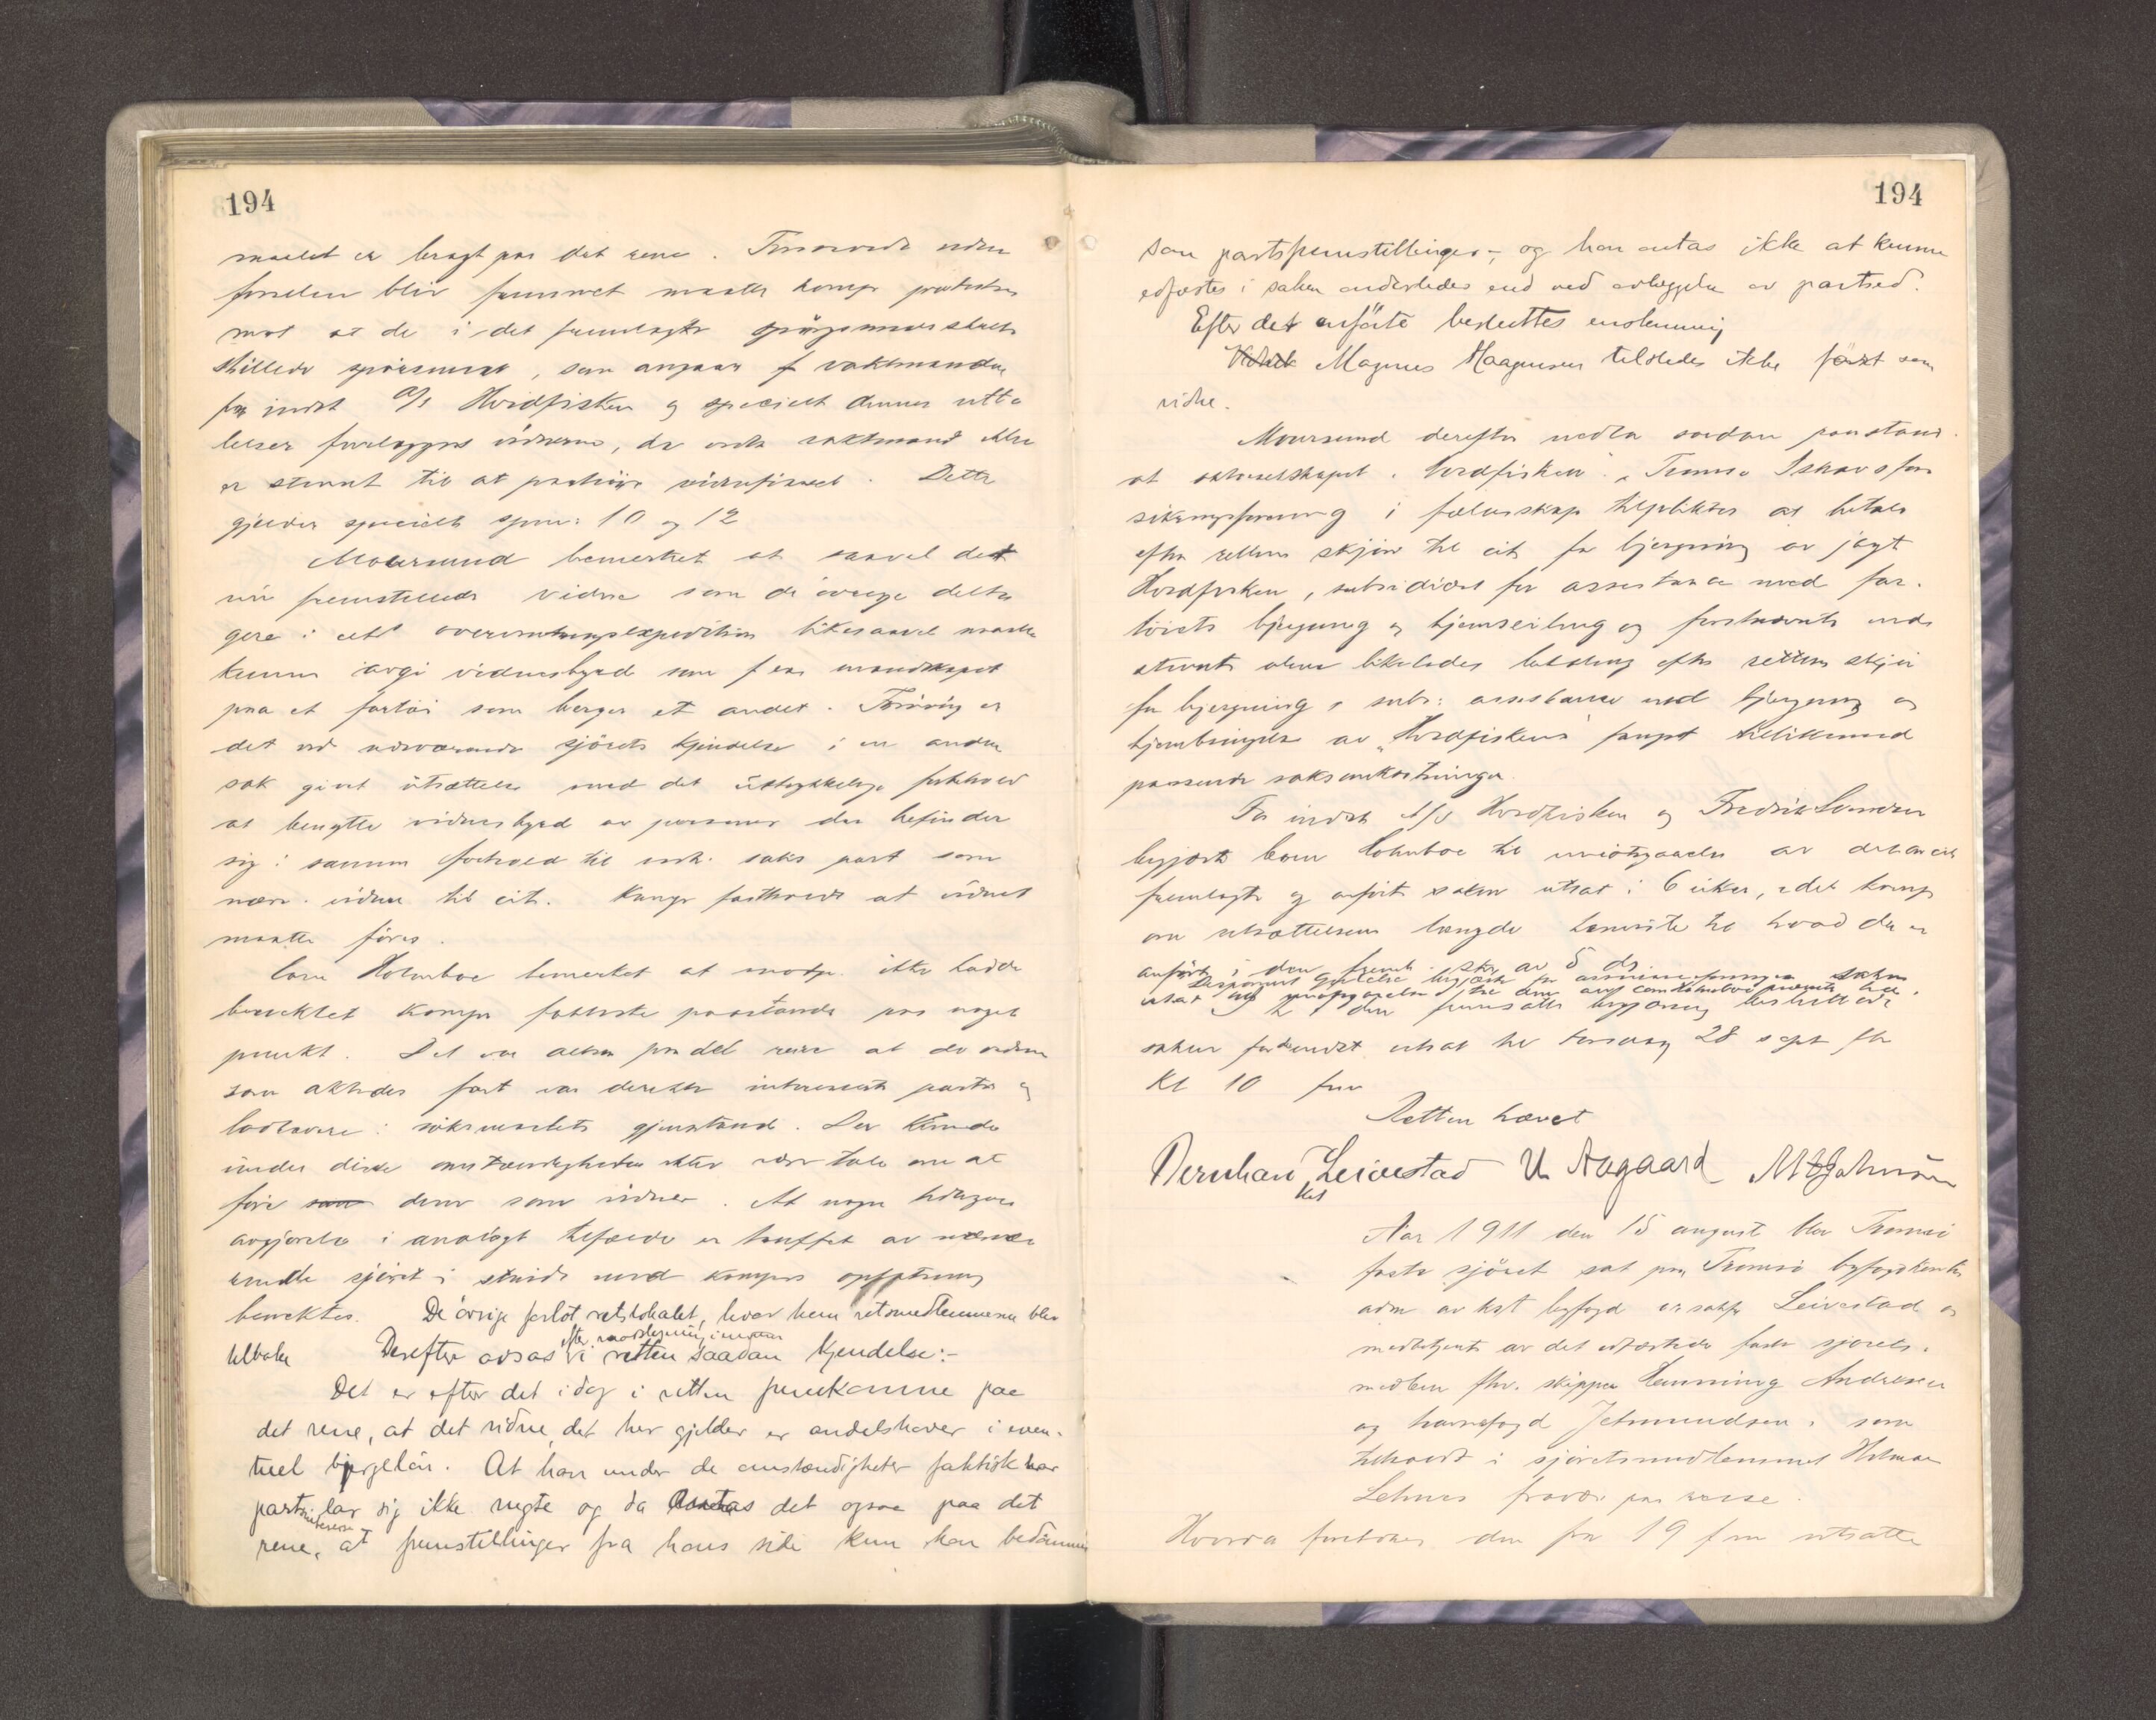 194
maalet er bragt paa det rene. Forsaavidt vidne
førselen blir fremmet maatte komp protestere
mot at de i det fremlagte spørgsmaalsskrift
stillede spørsmaal, som angaar vaktmanden
for indst A/s Hvidfisken og specielt dennes utta
lelser forelægges vidnerne, da vaktmand ikke
er stevnt til at paahøre vidneførsel. Dette
gjælder specielt spm: 10 og 12
Moursund bemerket at saavel det
nu fremstillede vidne som de øvrige delta
gere i overvintringsexpedition likesaavel maatte
kunne avgi vidnesbyrd som mandskapet
paa et fartøi som berger et andet. Forøvrig er
det ved nærværende sjørets kjendelse i en anden
sak givet utsættelse med det uttrykkelige forbehold
at benytte vidnesbyrd av personer der befinder
sig i samme forhold til saks part som
nærv. vidne til cit. Komp fastholdt at vidnet
maatte føres.
Carm Holmboe bemerket at modp. ikke hadde
benektet komps faktiske paastande paa noget
punkt. Det var altsaa paa det rene at de vidner
som aktedes ført var direkte interesserte parter og
lodtakere i søksmaalets gjenstand. Der kunde
under disse omstændigheter ikke være tale om at
føre dem som vidner. At nogen tidligere
avgjørelse i analogt tilfælde er truffet av nærvæ
rende sjøret i strid med komps opfatning
benektes. De øvrige forlot retslokalet, hvor kun retsmedlemmerne blev
tilbake Derefter avsas efter raadslagning i enrum i retten saadan kjendelse:-
Det er efter det idag i retten fremkomne paa
det rene, at det vidne, det her gjelder er andelshaver i even-
tuel bjergelön. At han under de omstændigheter faktisk har
partsinteresse lar sig ikke negte og da antas det ogsaa paa det
rene, at fremstillinger fra hans side kun kan bedömmes
194
som partsfremstillinger, og han antas ikke at kunne
edfæstes i saken anderledes end ved avlæggelse av partsed.
Efter det anförte besluttes enstemmig
Magnus Haagensen tilstedes ikke fört som
vidne.
Moursund derefter nedla saadan paastand
at aktieselskapet "Hvidfisken" og Tromsø Ishavsfor
sikringsforening i fællesskap tilpliktes at betale
efter rettens skjøn til cit for bjergning av jagt
Hvidfisken, subsidiært for assistance med far-
tøiets bjergning og hjemseiling og førstnævnte ind
stevnte alene likeledes betaling efter rettens skjøn
for bjergning, subs: assistance med bjergning og
hjembringelse av "Hvidfiskens" fangst tillikemed
passende saksomkostninger.
For indst A/s Hvidfisken og Fredrik
begjærte Carm Holmboe til imøtegaaelse av det av cit
fremlagte og anførte saken utsat i 6 uker, idet komp
om utsættelsens længde henviste til hvad der er
anført i den fremk. skr av 5 ds
saken
utsat
saken forøvrigt utsat til torsdag 28 sept
Kl 10 fm
Retten hævet
Bernhard Leivestad U Aagaard M Johnsen
kst
Aar 1911 den 15 august blev Tromsø
faste sjöret sat paa Tromsö byfogdkontor
adm av kst byfogd Leivestad og
medbetjent av det edfæstede faste sjørets-
medlem fhv. skipper Henning Andresen
og havnefogd Jetmundsen, som
tilkaldt i sjøretsmedlemmet Hilmar
Lehnes fravær paa reise.
Hvorda foretokes den fra 19 f m utsatte